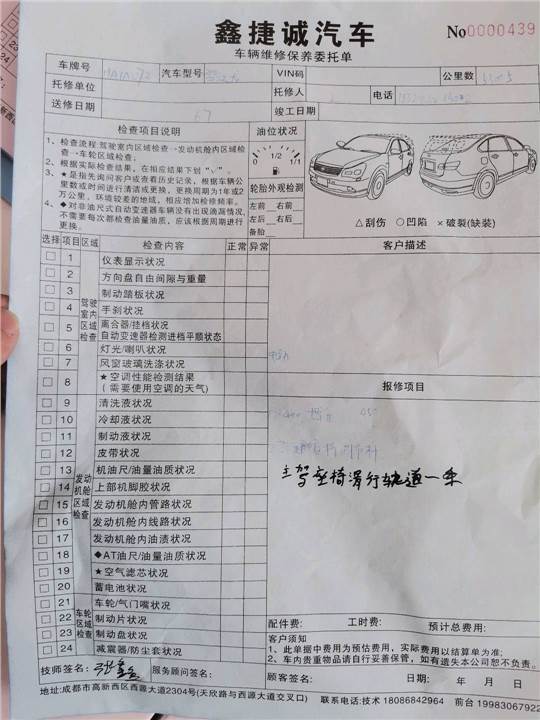 鑫捷诚汽车
车辆维修保养委托单
No0000439
车牌号 汽车型号 VIN码 公里数
托修单位 托修人 电话
送修日期 竣工日期
检查项目说明
1、检查流程:驾驶室内区域检查→发动机舱内区域检查→车轮区域检查;
2、根据实际检查结果,在相应结果下划"√"。
3、★是指先询问客户或查看历史记录,根据车辆公里数或时间进行清洁或更换,更换周期为1年或2万公里,环境较差的地域,相应增加检修频率。
4、◆对非油尺式自动变速器车辆没有出现滴漏情况,不需要每次都检查油量油质,应该根据周期进行更换。
油位状况
1/2 1/1
轮胎外观检测
左前 右前
左后 右后
备胎
△刮伤 ○凹陷 ×破裂(缺装)
选择 项目 区域 检查内容 正常 异常
驾驶室内区域检查
1 仪表显示状况
2 方向盘自由间隙与重量
3 制动踏板状况
4 手刹状况
5 离合器/挂档状况 自动变速器检测进档平顺状态
6 灯光/喇叭状况
7 风窗玻璃洗涤状况
8 ★空调性能检测结果(需要使用空调的天气)
发动机舱区域检查
9 清洗液状况
10 冷却液状况
11 制动液状况
12 皮带状况
13 机油尺/油量油质状况
14 上部机脚胶状况
15 发动机舱内管路状况
16 发动机舱内线路状况
17 发动机舱内油渍状况
18 ◆AT油尺/油量油质状况
19 ★空气滤芯状况
20 蓄电池状况
车轮区域检查
21 车轮/气门嘴状况
22 制动片状况
23 制动盘状况
24 减震器/防尘套状况
客户描述
报修项目
主驾座椅滑行轨道一条
配件费: 工时费: 预计总费用:
客户须知
1、此单据中费用为预估费用,实际费用以结算单为准;
2、车内贵重物品请自行妥善保管,如有遗失本公司恕不负责。
技师签名: 服务顾问签名:
地址:成都市高新西区西源大道2304号(天欣路与西源大道交叉口) 联系电话:技术 18086842964 前台 19983067922